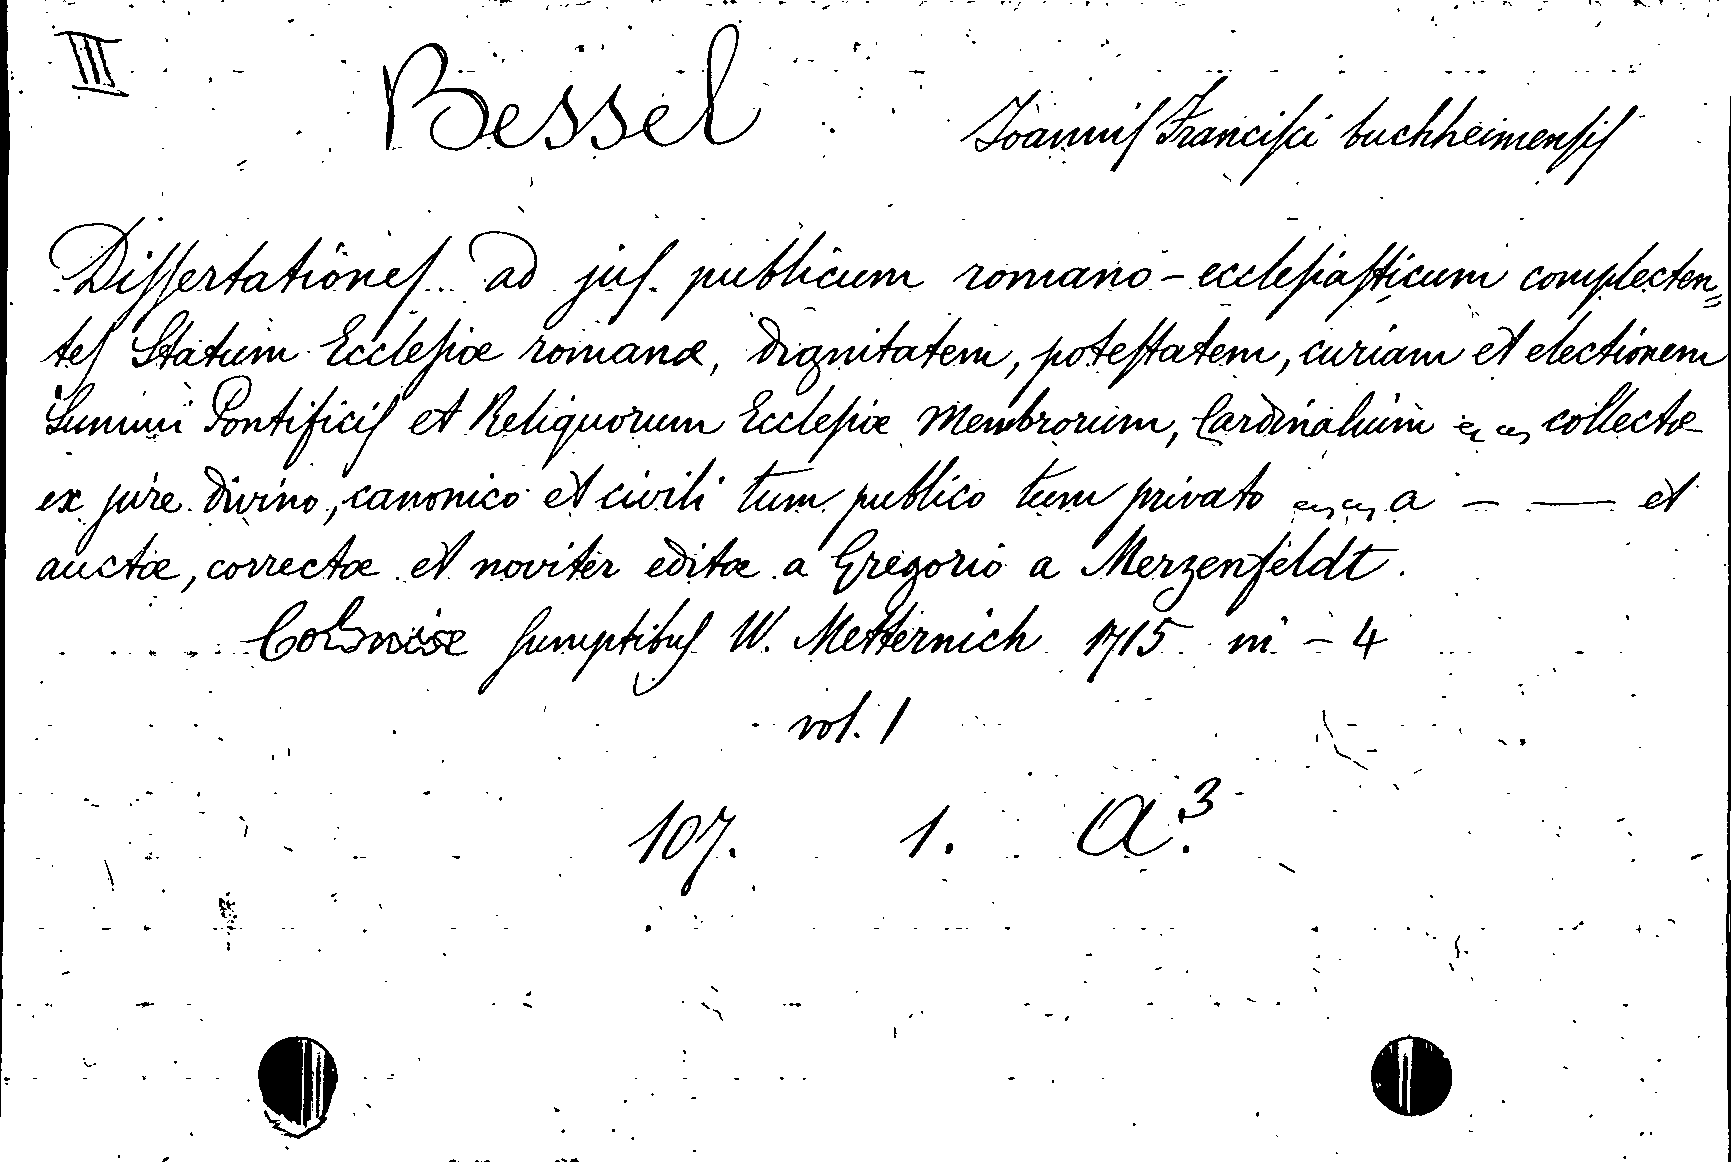 III
Bessel
Joanniſ Franciſci buchheimenſiſ
Diſſertationeſ ad juſ publicum romano-eccleſiaſticum complecten=
teſ Statum Eccleſiæ romanæ, dignitatem, poteſtatem, curiam et electionem
Summi Pontificiſ et Reliquorum Eccleſiæ Membrorum, Cardinalium collectæ
ex jure divino, canonico et civili tum publico tum privato a – — et
auctæ, correctæ et noviter editæ a Gregorio a Merzenfeldt.
Coloniæ ſumptibuſ W. Metternich 1715 in – 4
vol. 1
107. 1. A³.